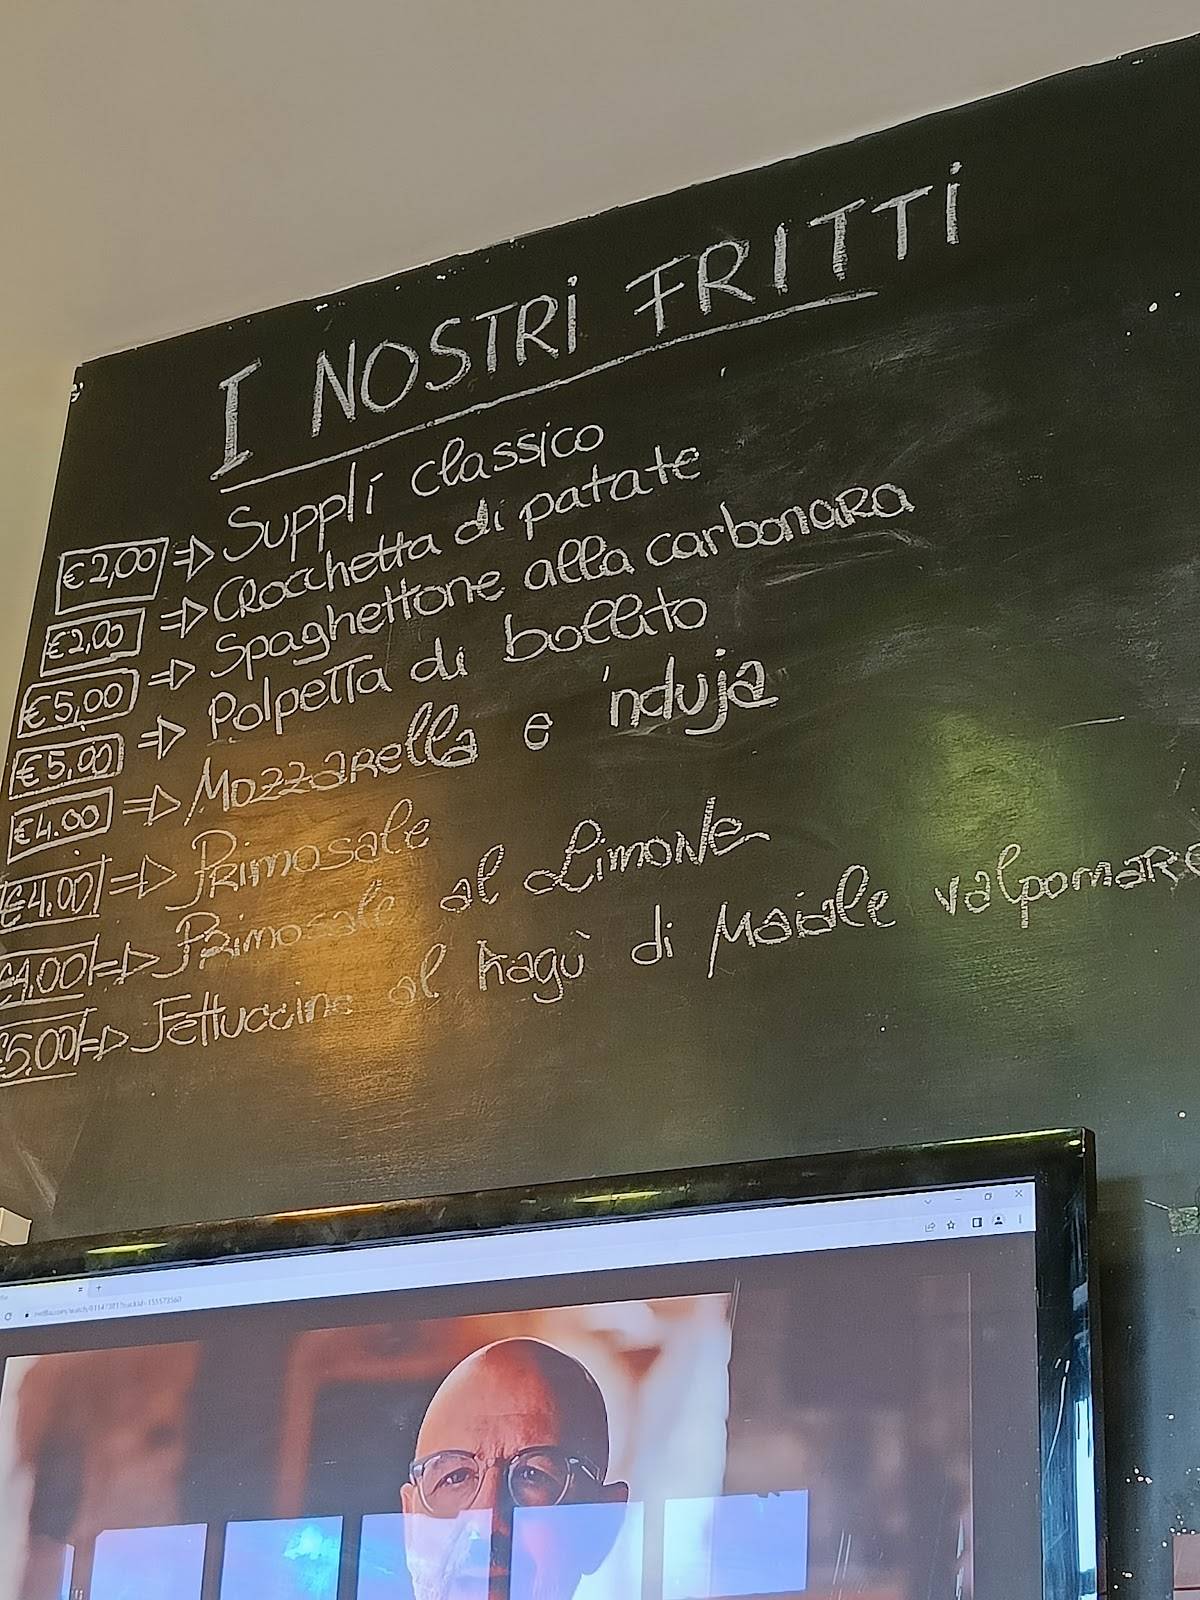 I NOSTRI FRITTI
€2,00 => Supplí classico
€2,00 => Crocchetta di patate
€5,00 => Spaghettone alla carbonara
€5,00 => Polpetta di bollito
€4.00 => Mozzarella e 'nduja
€4,00 => Primosale
€4,00 => Primosale al Limone
€5,00 => Fettuccine al Ragù di Maiale valpomare